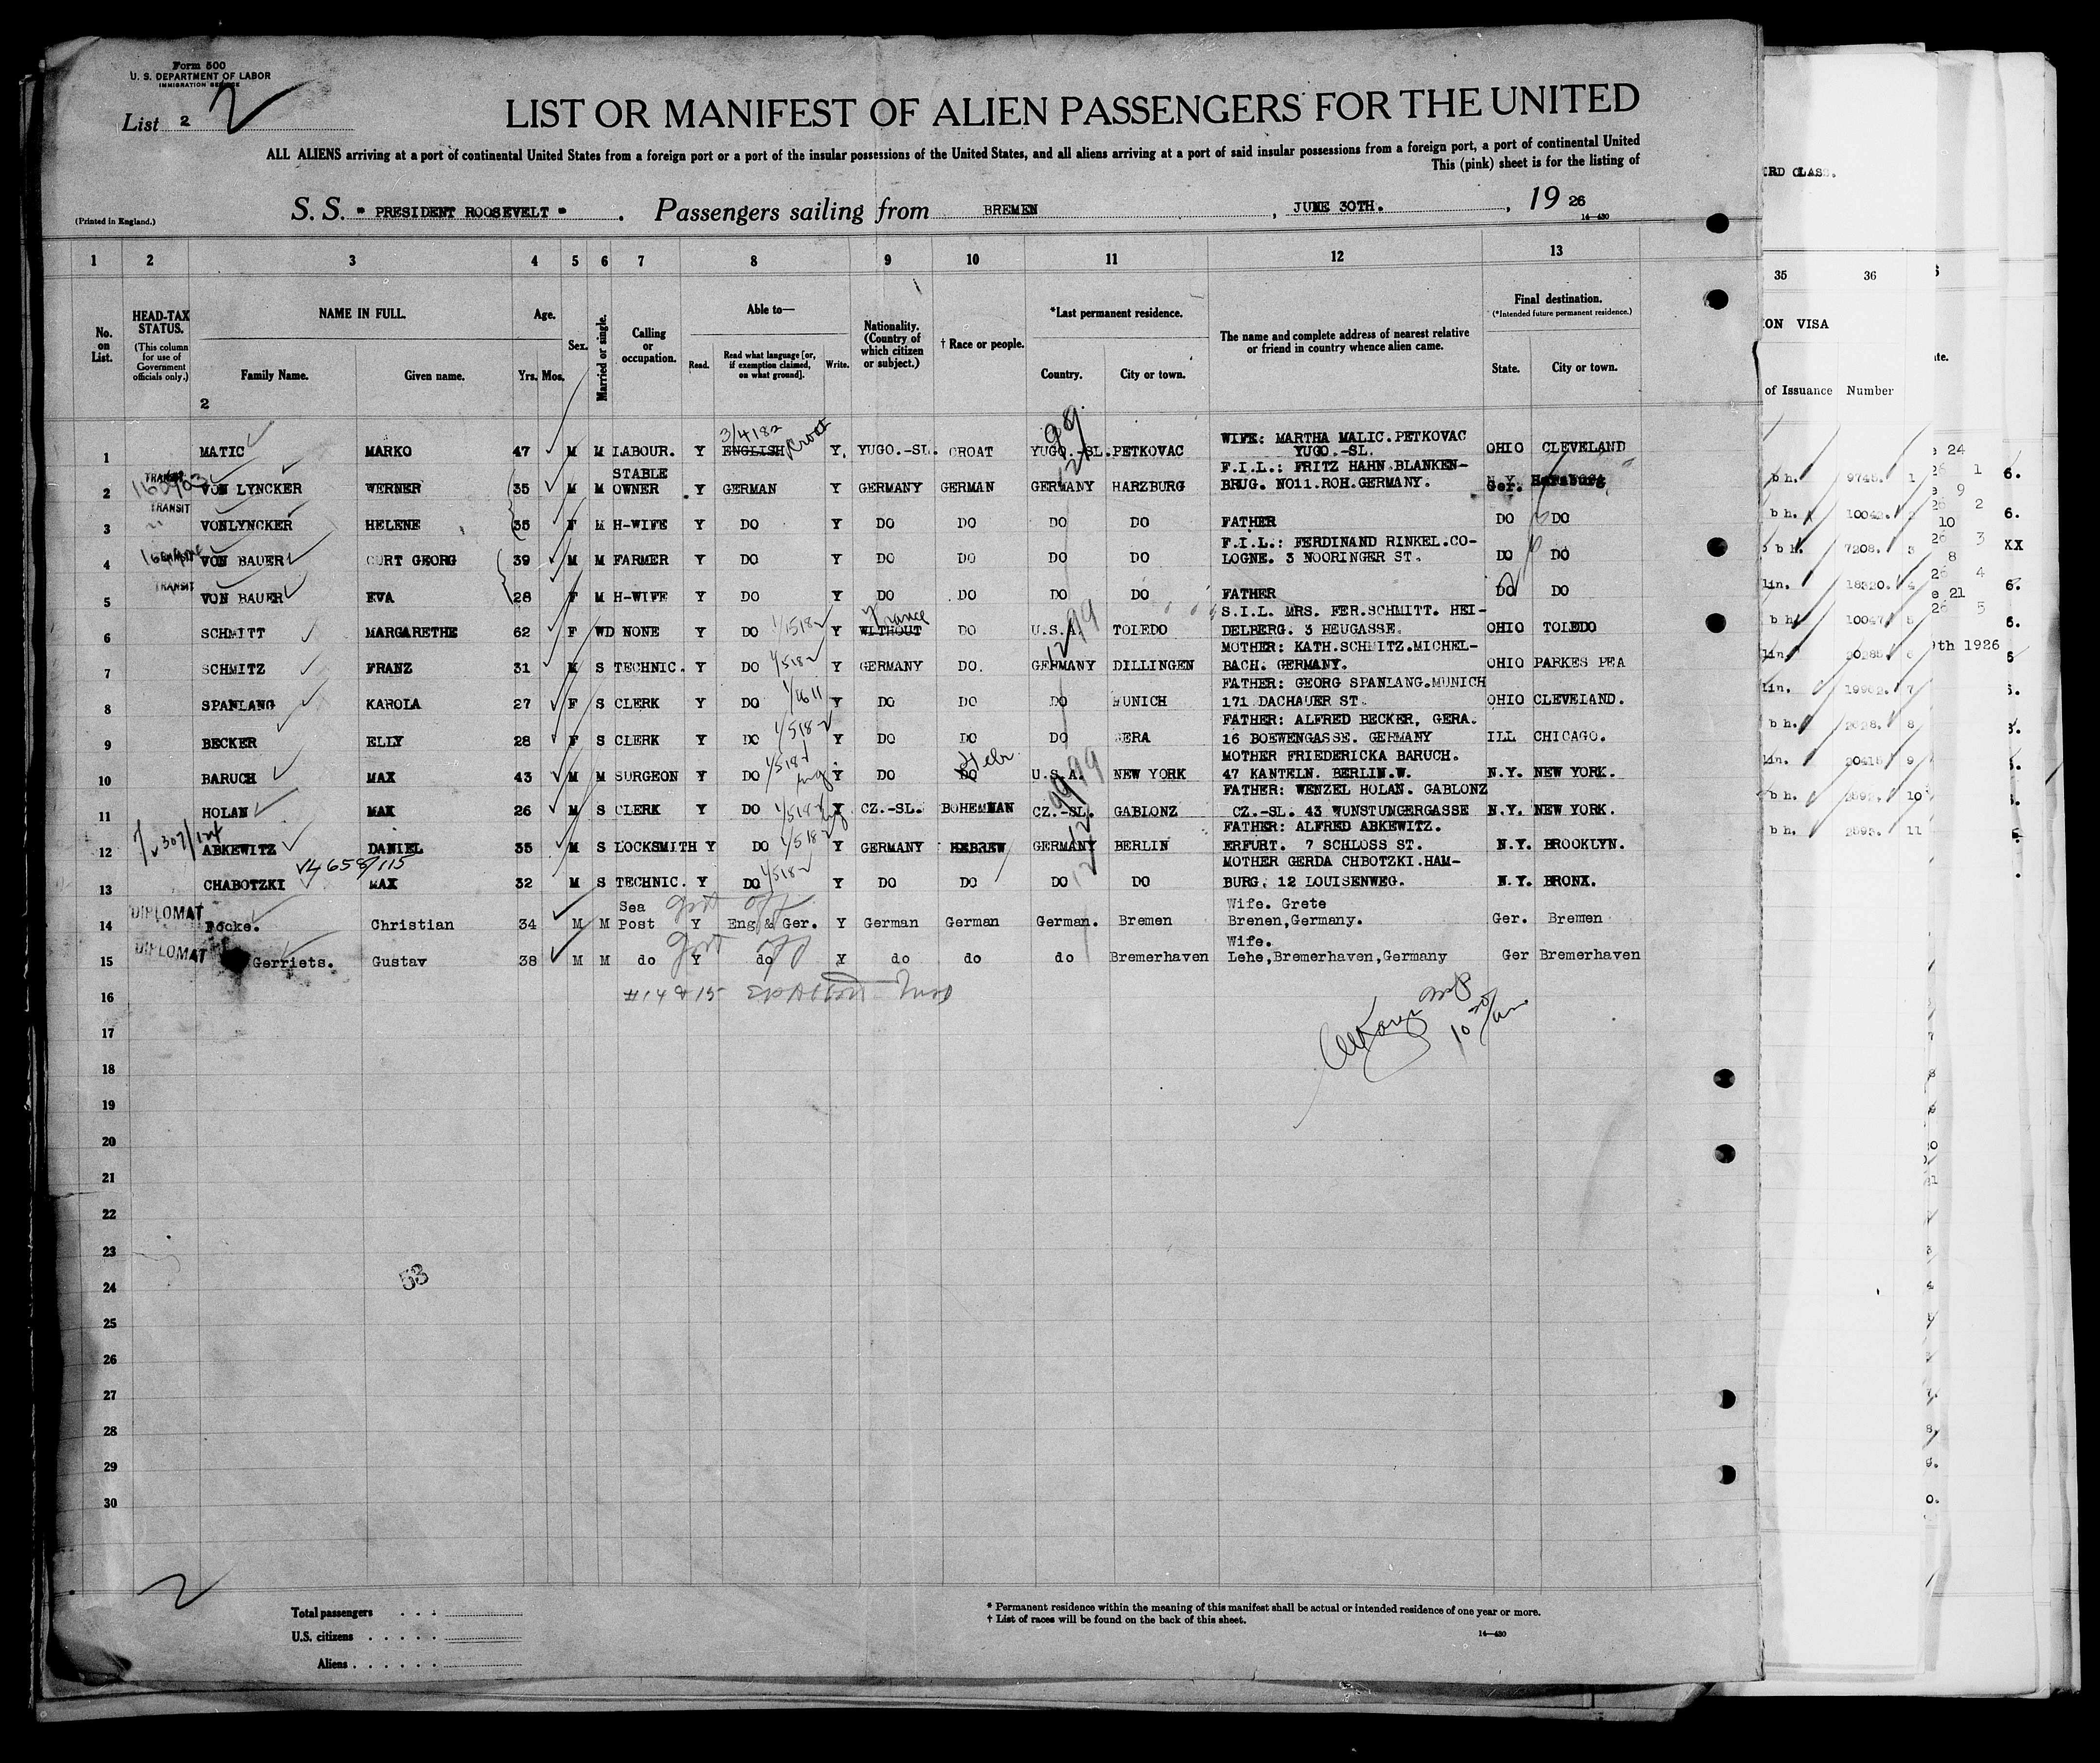 Form 500
U. S. DEPARTMENT OF LABOR
IMMIGRATION SERVICE
List 2 2
LIST OR MANIFEST OF ALIEN PASSENGERS FOR THE UNITED
ALL ALIENS arriving at a port of continental United States from a foreign port or a port of the insular possessions of the United States, and all aliens arriving at a port of said insular possessions from a foreign port, a port of continental United
This (pink) sheet is for the listing of
(Printed in England.)
S. S. " PRESIDENT ROOSEVELT " . Passengers sailing from BREMEN , JUNE 30TH. , 19 26
14—430
1 2 3 4 5 6 7 8 9 10 11 12 13
No. on List.
HEAD-TAX STATUS. (This column for use of Government officials only.)
NAME IN FULL.
Family Name. Given name.
2
Age.
Yrs. Mos.
Sex.
Married or single.
Calling or occupation.
Able to—
Read. Read what language [or, if exemption claimed, on what ground]. Write.
Nationality. (Country of which citizen or subject.)
† Race or people.
*Last permanent residence.
Country. City or town.
The name and complete address of nearest relative or friend in country whence alien came.
Final destination.
(*Intended future permanent residence.)
State. City or town.
3/4182 Croat 99
WIFE: MARTHA MALIC.PETKOVAC
1 MATIC MARKO 47 M M LABOUR. Y ENGLISH Y. YUGO.-SL. CROAT YUGO.-SL. PETKOVAC YUGO.-SL. OHIO CLEVELAND
TRANSIT STABLE F.I.L.: FRITZ HAHN.BLANKEN-
2 VON LYNCKER WERNER 35 M M OWNER Y GERMAN Y GERMANY GERMAN GERMANY HARZBURG BRUG. NO11.ROH.GERMANY. Ger. Harzburg
TRANSIT
3 VONLYNCKER HELENE 35 F M H-WIFE Y DO Y DO DO DO DO FATHER DO DO
F.I.L.: FERDINAND RINKEL.CO-
4 VON BAUER CURT GEORG 39 M M FARMER Y DO Y DO DO DO DO LOGNE. 3 NOORINGER ST. DO DO
TRANSIT
5 VON BAUER EVA 28 F M H-WIFE Y DO Y DO DO DO DO FATHER DO DO
France S.I.L. MRS. FER.SCHMITT. HEI-
6 SCHMITT MARGARETHE 62 F WD NONE Y DO 1/5182 Y WITHOUT DO U.S.A. TOLEDO DELBERG. 3 HEUGASSE. OHIO TOLEDO
MOTHER: KATH.SCHMITZ.MICHEL-
7 SCHMITZ FRANZ 31 M S TECHNIC. Y DO 1/5182 Y GERMANY DO. GERMANY DILLINGEN BACH. GERMANY. OHIO PARKES PEA
FATHER: GEORG SPANLANG.MUNICH
8 SPANLANG KAROLA 27 F S CLERK Y DO 1/1611 Y DO DO DO MUNICH 171 DACHAUER ST. OHIO CLEVELAND.
FATHER: ALFRED BECKER, GERA.
9 BECKER ELLY 28 F S CLERK Y DO 1/5182 Y DO DO DO GERA 16 BOEWENGASSE. GERMANY ILL CHICAGO.
Hebr MOTHER FRIEDERICKA BARUCH.
10 BARUCH MAX 43 M M SURGEON Y DO 1/5182 Eng. Y DO DO U.S.A. NEW YORK 47 KANTELN. BERLIN.W. N.Y. NEW YORK.
FATHER: WENZEL HOLAN. GABLONZ
11 HOLAN MAX 26 M S CLERK Y DO 1/5182 Eng Y CZ.-SL. BOHEMMAN CZ.-SL. GABLONZ CZ.-SL. 43 WUNSTUNGERGASSE N.Y. NEW YORK.
FATHER: ALFRED ABKEWITZ.
12 ABKEWITZ DANIEL 35 M S LOCKSMITH Y DO 1/5182 Y GERMANY HEBREW GERMANY BERLIN ERFURT. 7 SCHLOSS ST. N.Y. BROOKLYN.
4658/115 MOTHER GERDA CHBOTZKI.HAM-
13 CHABOTZKI MAX 32 M S TECHNIC. Y DO 1/5182 Y DO DO DO DO BURG. 12 LOUISENWEG. N.Y. BRONX.
DIPLOMAT Sea Govt off Wife. Grete
14 Focke. Christian 34 M M Post Y Eng & Ger. Y German German German. Bremen Brenen,Germany. Ger. Bremen
DIPLOMAT Govt off Wife.
15 Gerriets. Gustav 38 M M do Y do Y do do do Bremerhaven Lehe,Bremerhaven,Germany Ger Bremerhaven
16 #14 & 15
17
18
19
20
21
22
23
24
25
26
27
28
29
30
53
2
Total passengers . . .
U.S. citizens . . . . .
Aliens . . . . . .
* Permanent residence within the meaning of this manifest shall be actual or intended residence of one year or more.
† List of races will be found on the back of this sheet.
14—430
IRD CLASS.
35 36
ION VISA
of Issuance Number
b h. 9745. 1
b h. 10042. 2
b h. 7208. 3
lin. 18320. 4
b h. 10047 5
lin. 20285 6
lin. 19962. 7
b h. 2628. 8
lin. 20415 9
b h. 2592. 10
b h. 2593. 11
9th 1926
XX